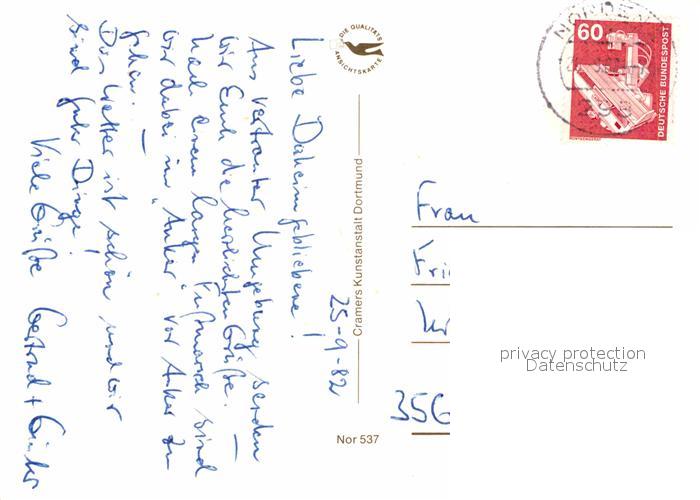 25-9-82
Liebe Daheimgebliebene!
Aus vertrauter Umgebung senden
wir Euch die herzlichsten Grüße. —
Nach einem langen Fußmarsch sind
wir dabei im "Anker" vor Anker zu
gehen. —
Das Wetter ist schön und wir
sind guter Dinge.
Viele Grüße Gertrud + Günter
DIE QUALITÄTS
ANSICHTSKARTE
Cramers Kunstanstalt Dortmund
Nor 537
NORDEN
60
DEUTSCHE BUNDESPOST
Frau
356
privacy protection
Datenschutz